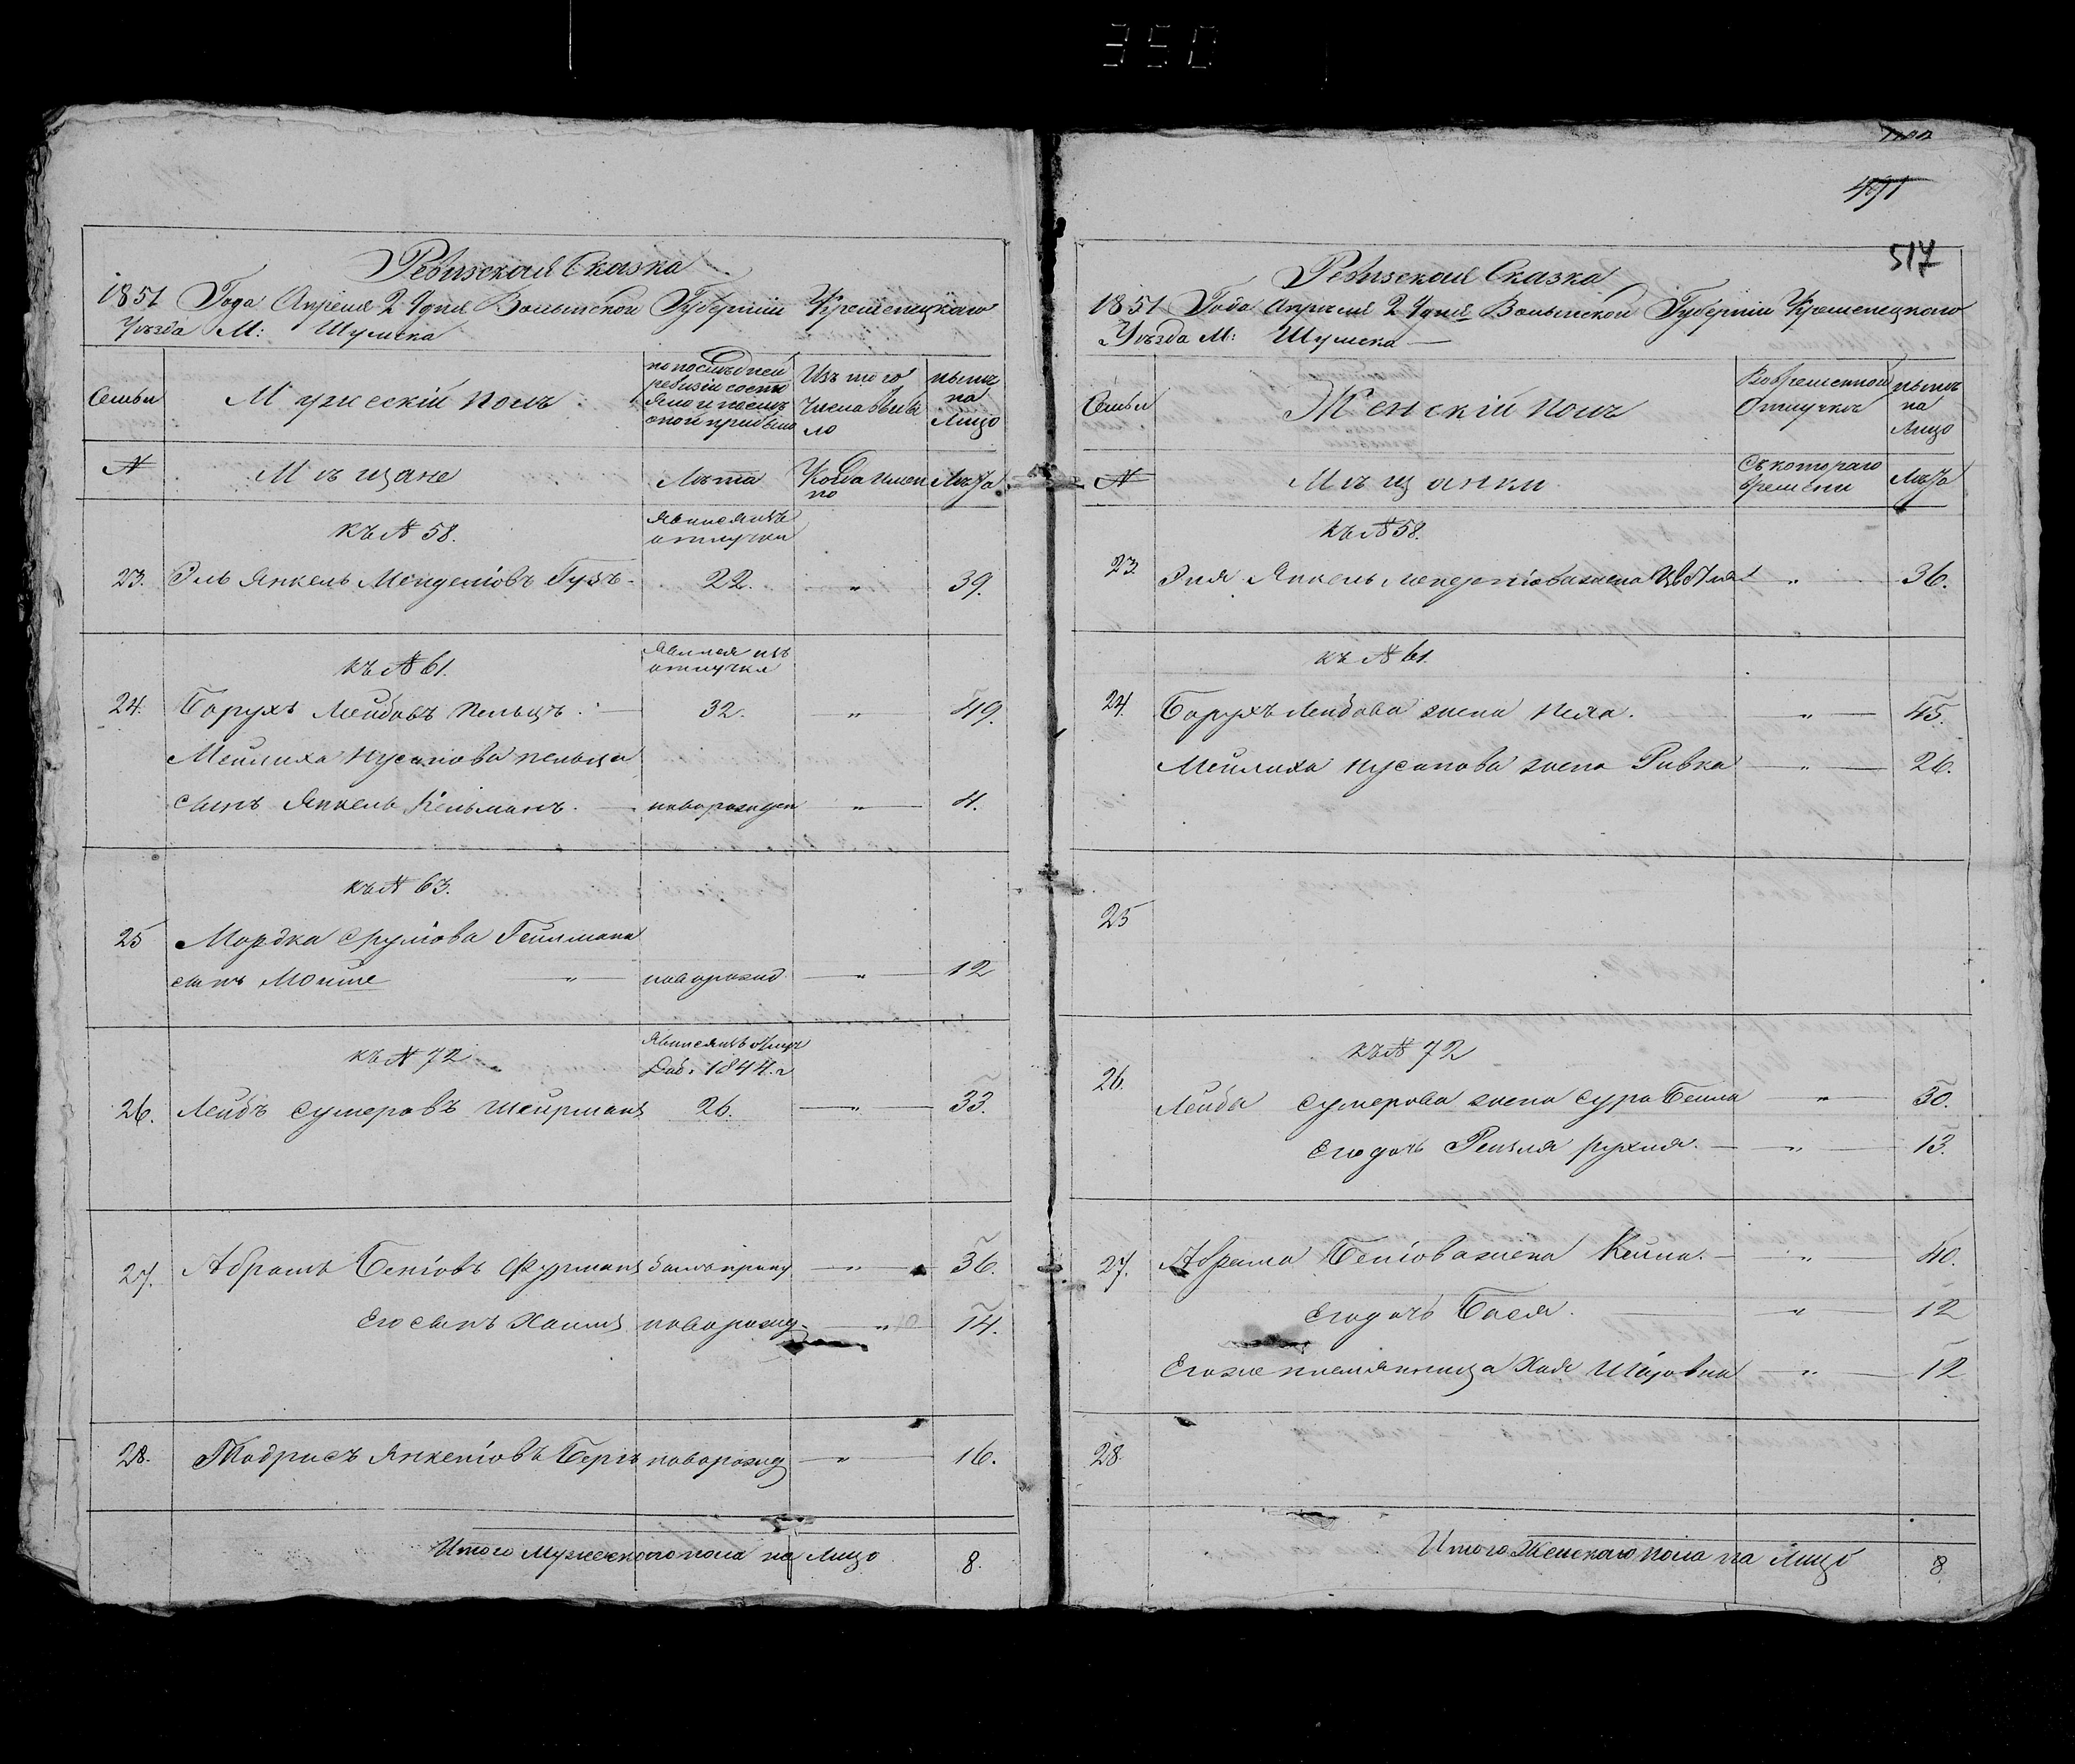 350
Ревизская Сказка
1851 Года Апреля 24 дня Волынской Губернiи Кременецкаго
Уѣзда М: Шумска
Семьи
Мужескiй полъ
по последней ревизiи состояло и после оной прибыло
Изъ того числа выбыло
нынѣ на Лицо
№
Мѣщане
Лѣта
Когда именно
Лѣта
къ № 58.
явился изъ отлучки
23. Эль Янкель Менделiовъ 22. " 39.
къ № 61.
явился изъ отлучки
24. Борухъ Лейбовъ Пельцъ. 32. " 49.
Мейлиха Нусинова Пельца
сынъ Янкель Кельманъ. новорожден " 4.
къ № 63.
25 Мордка Срулiова Гейлмана
сынъ Мошке " новорожд " 12
къ № 72
явился изъ 1844. г
26. Лейбъ Сумеровъ Шейрманъ 26. " 33.
27. Абрамъ Бенiовъ Фурманъ " 36.
Его сынъ Хаимъ новорожд. " 14.
28. Тодрисъ Янкелiовъ Бергъ новорожд " 16.
Итого мужескаго пола на лицо 8.
491
517
Ревизская Сказка
1851 Года Апреля 24 дня Волынской Губернiи Кременецкаго
Уѣзда М: Шумска
Семьи
Женскiй полъ
Во временной отлучкѣ
нынѣ на Лицо
№
Мѣщанки
Съ котораго времени
Лѣта
къ № 58.
23. Эля Янкель Менделiова жена Цвѣтля " 36.
къ № 61.
24. Борухъ Лейбова жена Песя. " 45.
Мейлиха Нусинова жена Ривка " 26.
25
къ № 72
26. Лейбы Сумерова жена Сура Бейла " 30.
Его дочь Рейзля Рухля. " 13.
27. Абрама Бенiова жена Кейла. " 40.
Его дочь Бася. " 12
Его же племянница Хая " 12
28.
Итого Женскаго пола на лицо 8